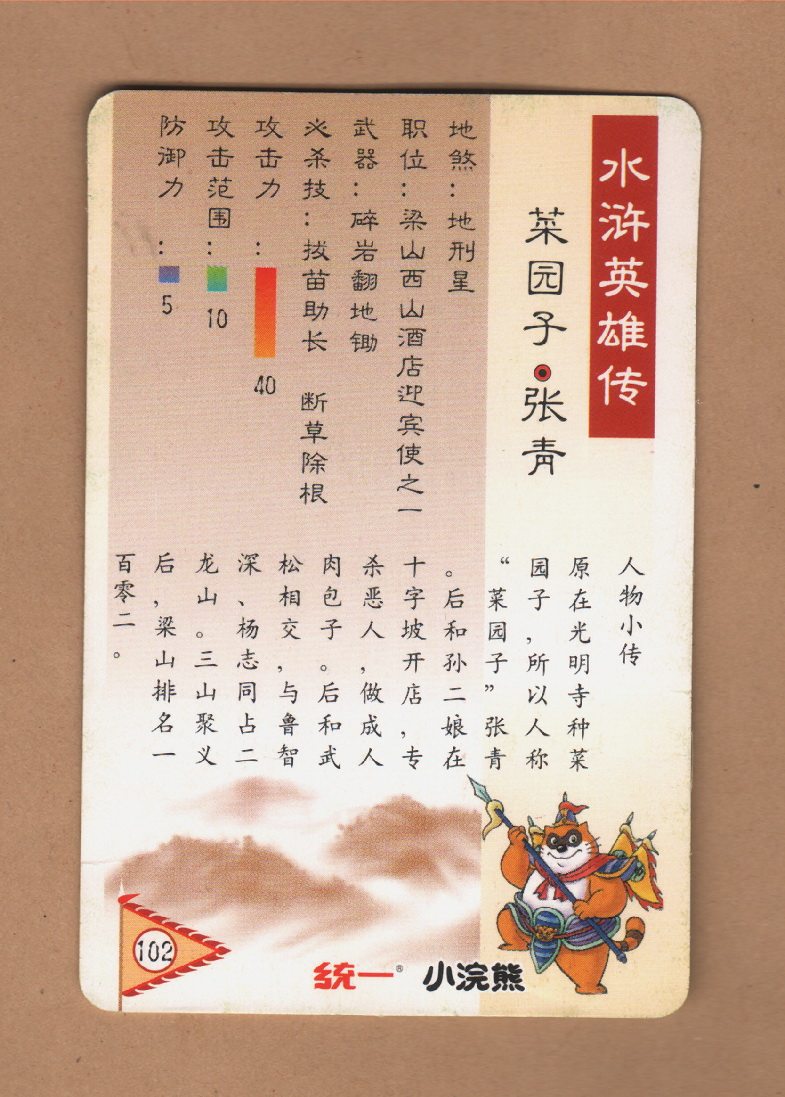 水浒英雄传
菜园子·张青
地煞：地刑星
职位：梁山西山酒店迎宾使之一
武器：碎岩翻地锄
必杀技：拔苗助长 断草除根
攻击力：40
攻击范围：10
防御力：5
人物小传
原在光明寺种菜
园子，所以人称
“菜园子”张青
。后和孙二娘在
十字坡开店，专
杀恶人，做成人
肉包子。后和武
松相交，与鲁智
深、杨志同占二
龙山。三山聚义
后，梁山排名一
百零二。
102
统一® 小浣熊